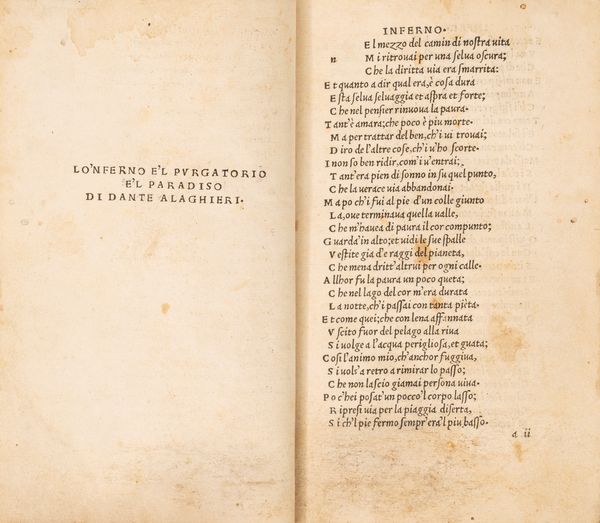 LO'NFERNO E'L PVRGATORIO
E'L PARADISO
DI DANTE ALAGHIERI.
INFERNO.
El mezzo del camin di nostra uita
n Mi ritrouai per una selua oscura;
Che la diritta uia era smarrita:
Et quanto a dir qual era, è cosa dura
Esta selua seluaggia et aspra et forte;
Che nel pensier rinuoua la paura.
Tant'è amara; che poco è piu morte.
Ma per trattar del ben, ch'i ui trouai;
Diro de l'altre cose, ch'i u'ho scorte.
I non so ben ridir, com'i u'entrai;
Tant'era pien di sonno in su quel punto,
Che la uerace uia abbandonai.
Ma po ch'i fui al pie d'un colle giunto
La, oue terminaua quella ualle,
Che m'hauea di paura il cor compunto;
Guarda'in alto; et uidi le sue spalle
Vestite gia d'e raggi del pianeta,
Che mena dritt'altrui per ogni calle.
Allhor fu la paura un poco queta;
Che nel lago del cor m'era durata
La notte, ch'i passai con tanta pièta.
Et come quei; che con lena affannata
Vscito fuor del pelago alla riua
Si uolge a l'acqua perigliosa, et guata;
Cosi l'animo mio, ch'anchor fuggiua,
Si uols'a retro a rimirar lo passo;
Che non lascio giamai persona uiua.
Po c'hei posat'un poco'l corpo lasso;
Ripresi uia per la piaggia diserta,
Si ch'l pie fermo sempr'era'l piu basso.
a ii